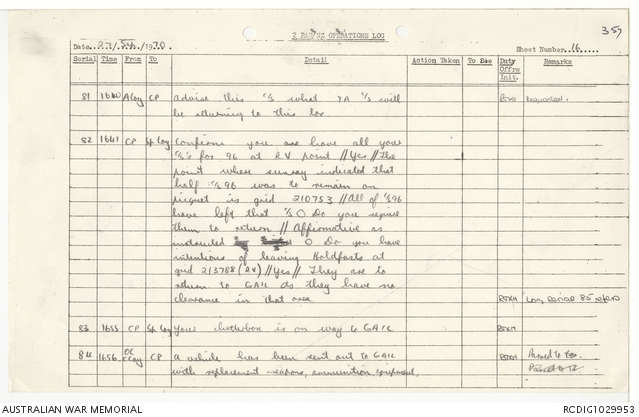 357
2 RAR/NZ OPERATIONS LOG
Date 27/Sep/1970 Sheet Number 16
Serial Time From To Detail Action Taken To See Duty Offrs Init. Remarks
81 1640 A Coy CP Advise this c/s what TA c/s will
be returning to this loc
82 1641 CP Sp Coy Confirm you are have all your
c/s's for 96 at RV point // Yes // The
point where sunray indicated that
half c/s 96 was to remain on
picquet is grid 210753 // All of c/s 96
have left that c/s O Do you require
them to return // Affirmative as
instructed O Do you have
intentions of leaving Holdfasts at
grid 213788 (RV) // Yes // They are to
return to GAIL as they have no
clearance in that area Log serial 85 refers
83 1653 CP Sp Coy Your is on way to GAIL
84 1656 CP A vehicle has been sent out to GAIL
with replacement weapons, ammunition equipment.
AUSTRALIAN WAR MEMORIAL RCDIG1029953